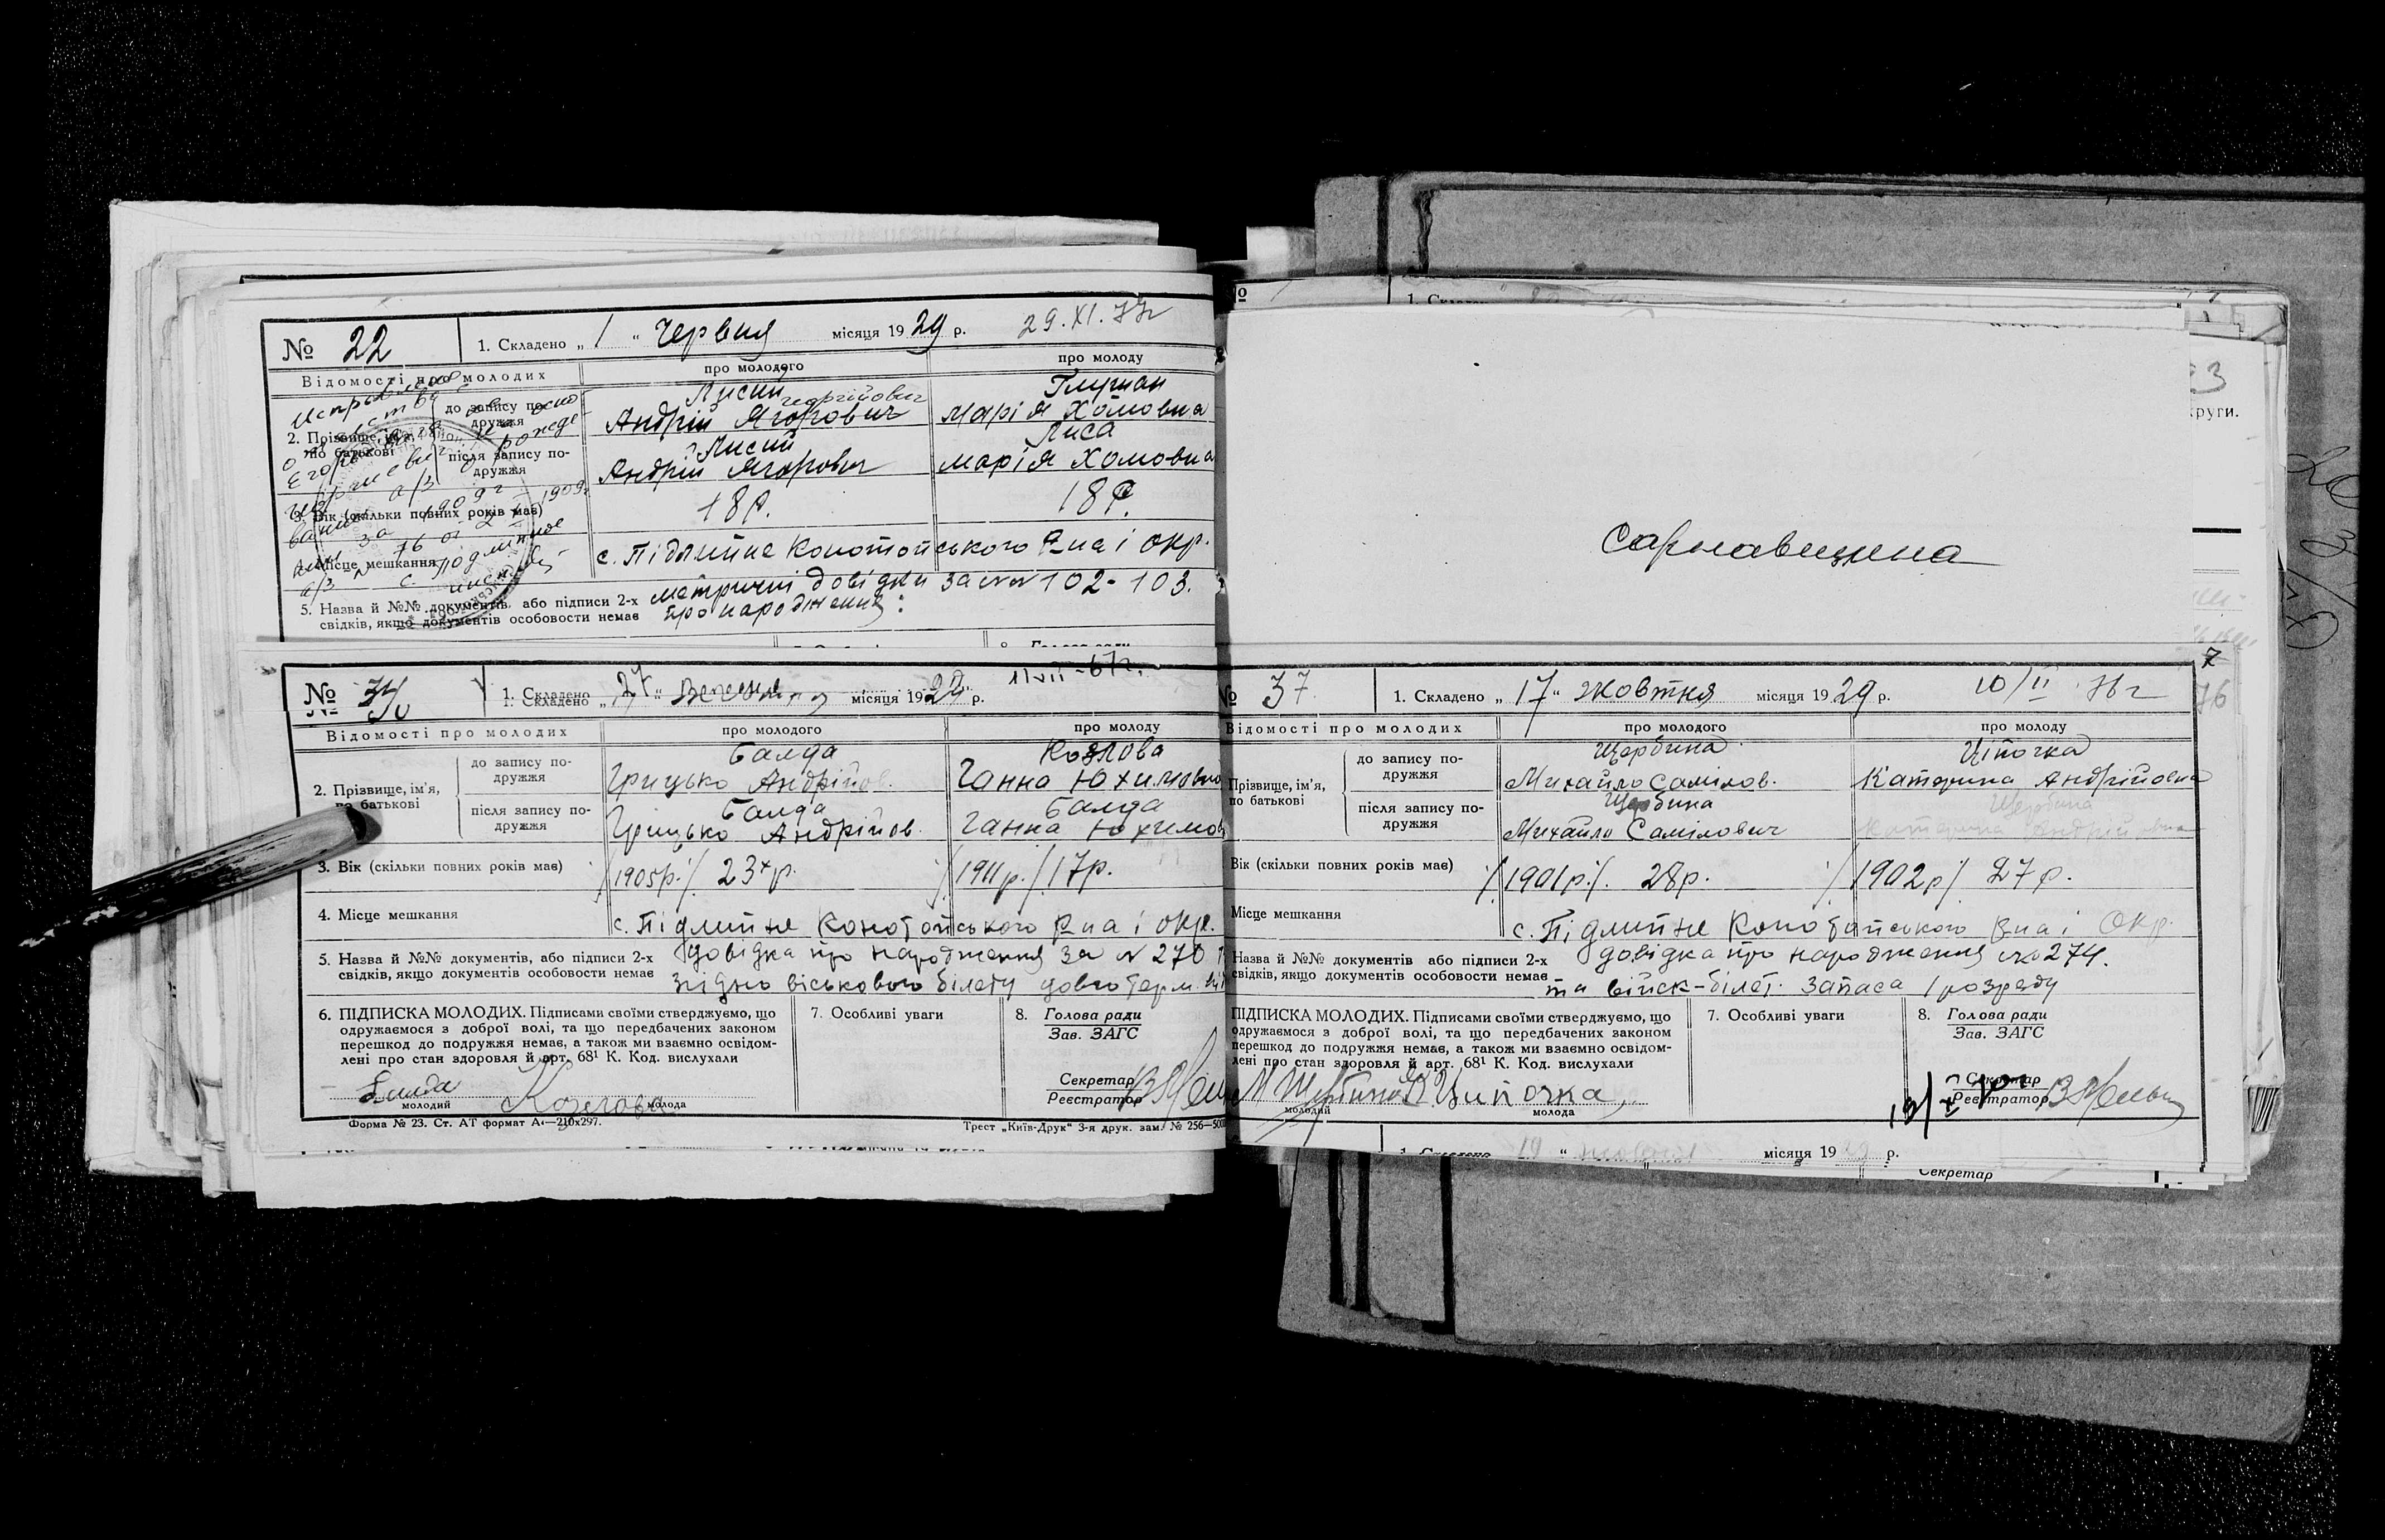 № 22
1. Складено „ 1 “ Червня місяця 1929 р. 29.XI.77г
Відомості про молодих
про молодого
про молоду
2. Прізвище, ім'я, по батькові
до запису подружжя
Лисий
Андрій Ягорович
Георгійович
Глушан
Марія Хомовна
після запису подружжя
Лисий
Андрій Ягорович
Лиса
Марія Хомовна
3. Вік (скільки повних років має)
18 р.
18 р.
4. Місце мешкання
с. Підлипне Конотопського Р-на і окр.
5. Назва й №№ документів, або підписи 2-х
свідків, якщо документів особовости немає
метричні довідки за №№ 102-103.
про народження:
№
1. Складено „ 27 “ Вересня місяця 1929 р. 11/VII-67г.
Відомості про молодих
про молодого
про молоду
2. Прізвище, ім'я,
по батькові
до запису по-
дружжя
Балда
Грицько Андрійов.
Козлова
Ганна Юхимовна
після запису по-
дружжя
Балда
Грицько Андрійов.
Балда
Ганна Юхимов
3. Вік (скільки повних років має)
/1905р./ 23 р.
/1911р./ 17р.
4. Місце мешкання
с. Підлипне Конотопського Р-на і окр.
5. Назва й №№ документів, або підписи 2-х
свідків, якщо документів особовости немає
довідка про народження за № 270
згідно військового білету довготерм.
6. ПІДПИСКА МОЛОДИХ. Підписами своїми стверджуємо, що
одружаємося з доброї волі, та що передбачених законом
перешкод до подружжя немає, а також ми взаємно освідом-
лені про стан здоровля й арт. 68¹ К. Код. вислухали
Балда
молодий
Козлова
молода
7. Особливі уваги
8. Голова ради
Зав. ЗАГС
Секретар
Реєстратор
Форма № 23. Ст. АТ формат А₄—210х297.
Трест „Київ-Друк“ 3-я друк. зам. № 256—500
Сарнавщина
№ 37
1. Складено „ 17 “ жовтня місяця 1929 р. 10/II 76г
Відомості про молодих
про молодого
про молоду
Прізвище, ім'я,
по батькові
до запису по-
дружжя
Щербина
Михайло Самілов.
Ціпочка
Катерина Андрійовна
після запису по-
дружжя
Щербина
Михайло Самілович
Щербина
Катерина Андрійовна
Вік (скільки повних років має)
/1901р./ 28р.
/1902р/ 27р.
Місце мешкання
с. Підлипне Конотопського Р-на і окр.
Назва й №№ документів або підписи 2-х
свідків, якщо документів особовости немає
довідка про народження № 274.
та війск-білет. запаса 1 розряду
ПІДПИСКА МОЛОДИХ. Підписами своїми стверджуємо, що
одружаємося з доброї волі, та що передбачених законом
перешкод до подружжя немає, а також ми взаємно освідом-
лені про стан здоровля й арт. 68¹ К. Код. вислухали
М Щербина
молодий
К. Ципочка
молода
7. Особливі уваги
8. Голова ради
Зав. ЗАГС
Секретар
Реєстратор
1. Складено „ 19 “ жовтня місяця 1929 р.
Секретар